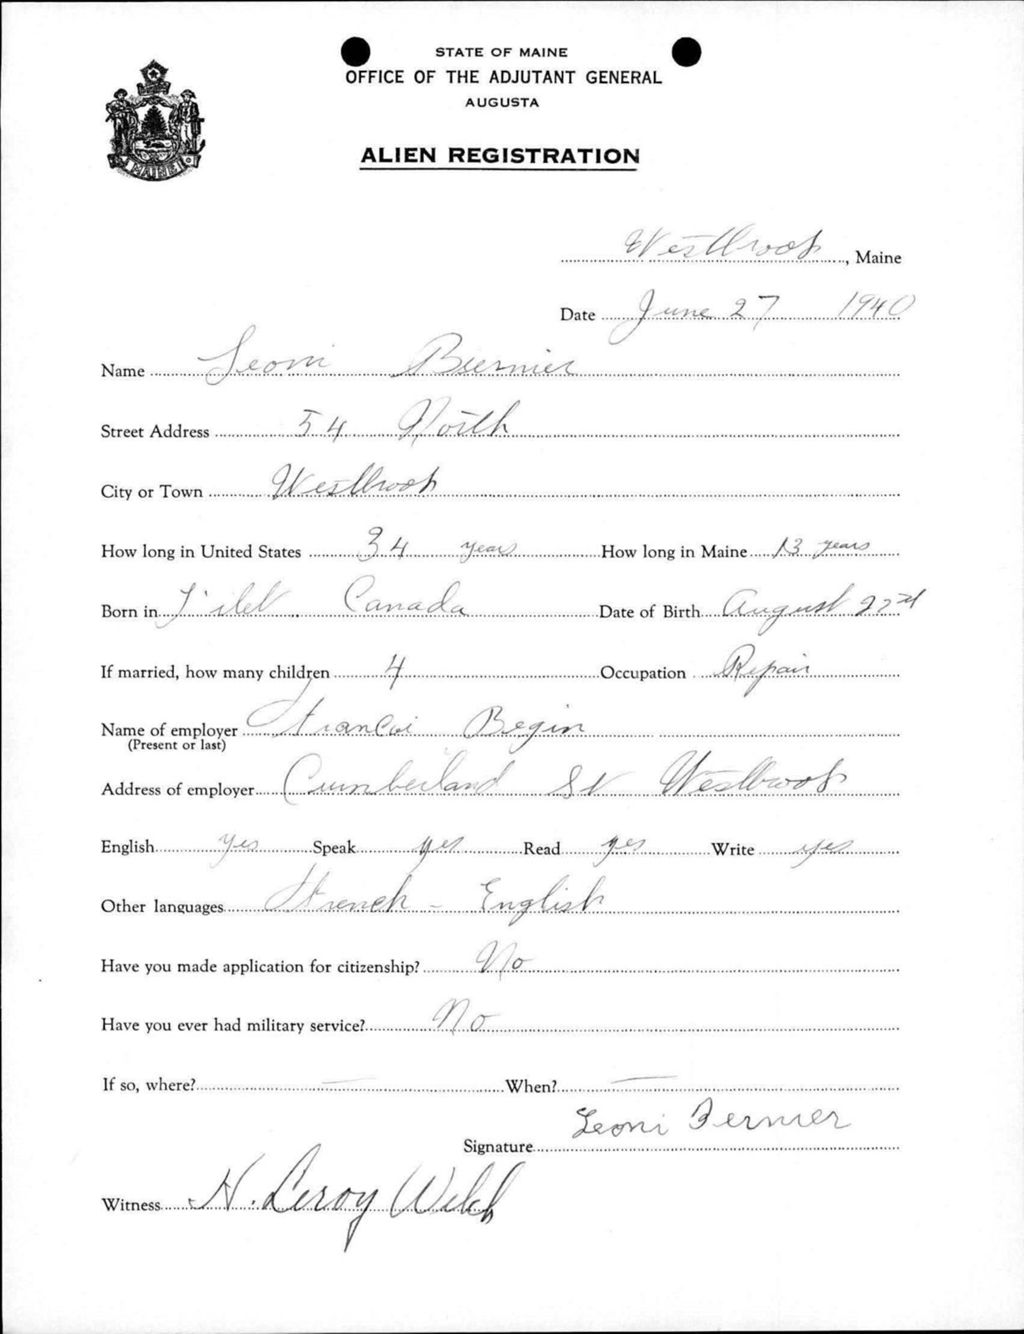 STATE OF MAINE
OFFICE OF THE ADJUTANT GENERAL
AUGUSTA
ALIEN REGISTRATION
MAINE
Westbrook, Maine
Date June 27 1940
Name Leoni Bernier
Street Address 54 North
City or Town Westbrook
How long in United States 34 years How long in Maine 13 years
Born in L'ilet Canada Date of Birth August
If married, how many children 4 Occupation Repair
Name of employer Begin
(Present or last)
Address of employer Cumberland St Westbrook
English yes Speak yes Read yes Write yes
Other languages French - English
Have you made application for citizenship? No
Have you ever had military service? No
If so, where? — When? —
Signature Leoni Bernier
Witness H. Leroy Welch